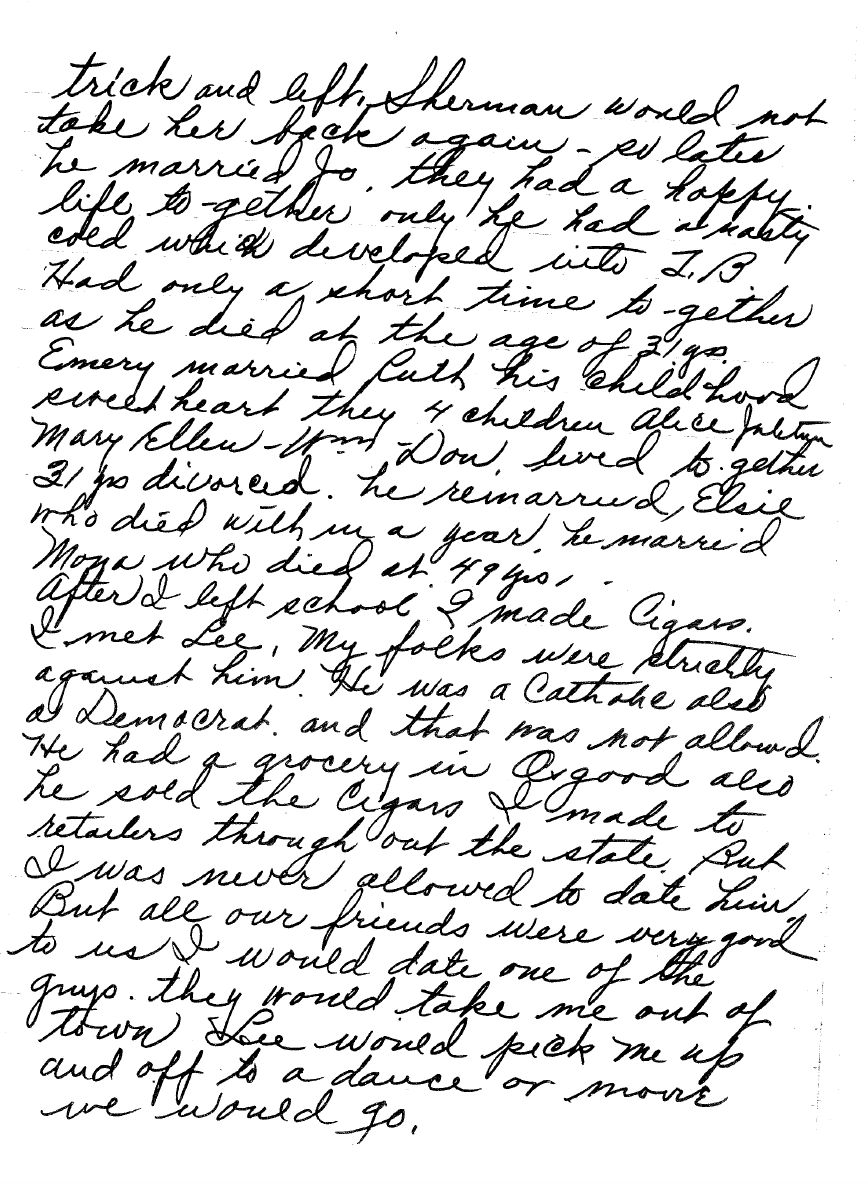 trick and left. Sherman would not
take her back again - so later
he married Jo. they had a happy.
life to-gether only he had a nasty
cold which developed into T.B
Had only a short time to-gether
as he died at the age of 31 yrs.
Emery married Ruth his childhood
sweetheart they 4 children Alice
Mary Ellen - Wm - Don. lived to-gether
31 yrs divorced. he remarried, Elsie
who died with in a year. he married
Mona who died at 49 yrs.
After I left school I made Cigars.
I met Lee. My folks were strickly
against him. He was a Catholic also
a Democrat. and that was not allowed.
He had a grocery in Osgood also
he sold the Cigars I made to
retailers through out the state. But
I was never allowed to date him.
But all our friends were very good
to us I would date one of the
guys. they would take me out of
town Lee would pick me up
and off to a dance or movie
we would go.